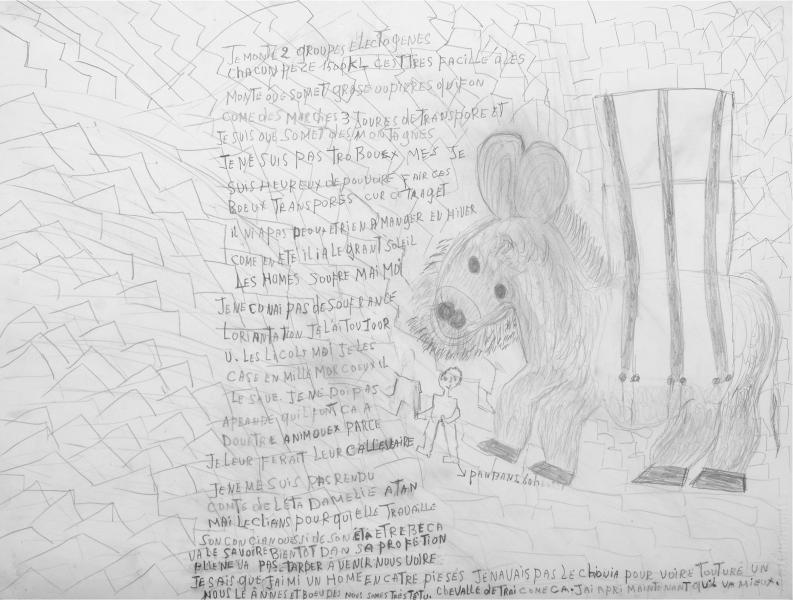 JE MONTE 2 GROUPES ELECTOGENES
CHACUN PEZE 1500KL CES TRES FACILLE A LES
MONTE QUE SOMET GROSE OU PIERRES QUI FON
COME DES MARCHES 3 JOURES de TRANSPORE ET
JE SUIS QUE SOMET DES MONTAGNES
JE NE SUIS PAS TRO BOUEX MES JE
SUIS HEUREUX de POUVOIRE FAIR CES
BOEUX TRANSPORES CUR CE TRAGET
IL NI A PAS PEOU ETRIEN A MANGER EN HIVER
COME EN ETE IL I A LE GRANT SOLEIL
LES HOMES SOUFRE MAI MOI
JE NE CONAI PAS de SOUFRANCE
LORIANTATION JE LAI TOUJOUR
U. LES LICOLS MOI JE LES
CASE EN MILLE MORCOEUX IL
LE SAVE. JE NE DOI PAS
APRANDE QUIL FONT CA A
DOUTRE ANIMOUEX PARCE
JE LEUR FERAIT LEUR CALLESSAIRE
JE NE ME SUIS PAS RENDU
CONTE de LETA DAMELIE ATAN
MAI LECLIANS POUR QUI ELLE TRAVAILLE
SON CONCIAN OUSSI de SON ETA ET REBECA
VA LE SAVOIRE BIENTOT DAN SA PROFETION
ELLE NE VA PAS TARDER A VENIR NOUS VOIRE
JE SAIS QUE JAI MI UN HOME EN CATRE PIESES JE NAVAIS PAS LE CHOUIA POUR VOIRE TOUTURE UN
NOUS LE ANNES ET BOEU DES NOUS SOMES TRES TETU. CHEVALLE de TRAI COME CA. JAI APRI MAINTENANT QU'IL VA MIEUX.